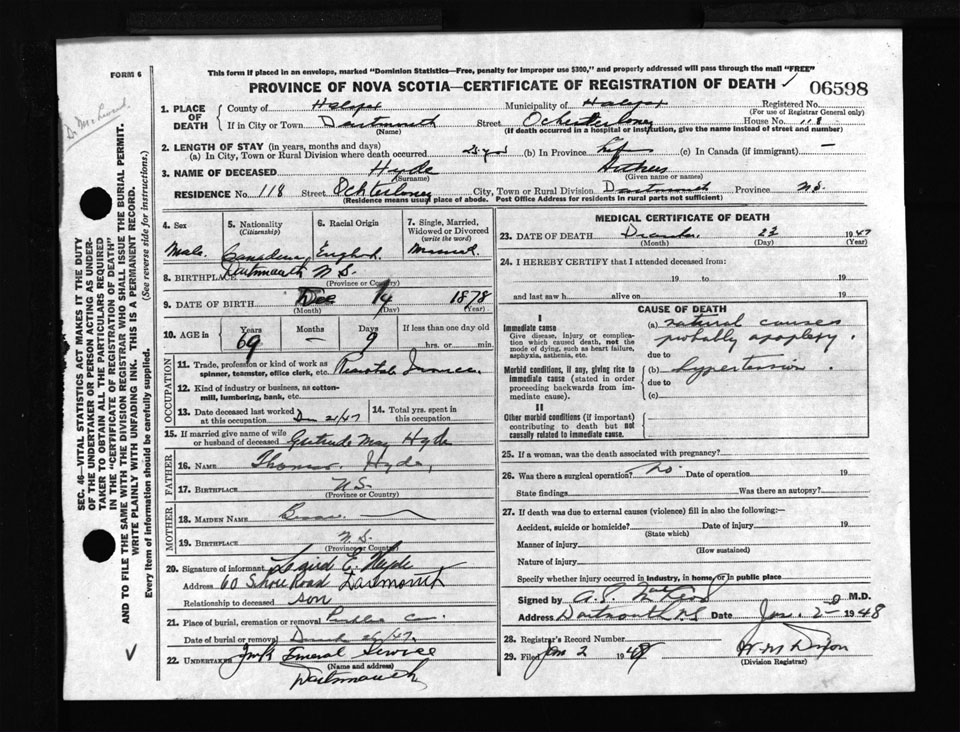 FORM 6
This form if placed in an envelope, marked "Dominion Statistics—Free, penalty for improper use $300," and properly addressed will pass through the mail "FREE"
PROVINCE OF NOVA SCOTIA—CERTIFICATE OF REGISTRATION OF DEATH
06598
1. PLACE OF DEATH
County of Halifax Municipality of Halifax Registered No.
(For use of Registrar General only)
If in City or Town Dartmouth Street Ochterloney House No. 118
(Name) (If death occurred in a hospital or institution, give the name instead of street and number)
2. LENGTH OF STAY (in years, months and days)
(a) In City, Town or Rural Division where death occurred (b) In Province Life (c) In Canada (if immigrant) —
3. NAME OF DECEASED Hyde
(Surname) (Given name or names)
RESIDENCE No. 118 Street Ochterloney City, Town or Rural Division Dartmouth Province N.S.
(Residence means usual place of abode. Post Office Address for residents in rural parts not sufficient)
4. Sex
Male
5. Nationality
(Citizenship)
Canadian
6. Racial Origin
English
7. Single, Married, Widowed or Divorced
(write the word)
Married
8. BIRTHPLACE Dartmouth N.S.
(Province or Country)
9. DATE OF BIRTH Dec 14 1878
(Month) (Day) (Year)
10. AGE in
Years Months Days If less than one day old
69 — 9 hrs. or min.
OCCUPATION
11. Trade, profession or kind of work as spinner, teamster, office clerk, etc.
12. Kind of industry or business, as cotton-mill, lumbering, bank, etc.
13. Date deceased last worked at this occupation 21/47
14. Total yrs. spent in this occupation
15. If married give name of wife or husband of deceased Gertrude May Hyde
FATHER
16. NAME Thomas Hyde
17. BIRTHPLACE N.S.
(Province or Country)
MOTHER
18. MAIDEN NAME
19. BIRTHPLACE N.S.
(Province or Country)
20. Signature of informant E. Hyde
Address 60 Shore Road Dartmouth
Relationship to deceased son
21. Place of burial, cremation or removal
Date of burial or removal 26/47
22. UNDERTAKER Funeral Service
(Name and address)
Dartmouth
MEDICAL CERTIFICATE OF DEATH
23. DATE OF DEATH December 23 1947
(Month) (Day) (Year)
24. I HEREBY CERTIFY that I attended deceased from:
19 to 19
and last saw h alive on 19
CAUSE OF DEATH
I
Immediate cause
Give disease, injury or complication which caused death, not the mode of dying, such as heart failure, asphyxia, asthenia, etc.
(a) natural causes
probably apoplexy.
due to
Morbid conditions, if any, giving rise to immediate cause (stated in order proceeding backwards from immediate cause).
(b) hypertension.
due to
(c)
II
Other morbid conditions (if important) contributing to death but not causally related to immediate cause.
25. If a woman, was the death associated with pregnancy?
26. Was there a surgical operation? no Date of operation 19
State findings Was there an autopsy?
27. If death was due to external causes (violence) fill in also the following:—
Accident, suicide or homicide? Date of injury 19
(State which)
Manner of injury
(How sustained)
Nature of injury
Specify whether injury occurred in industry, in home, or in public place
Signed by M.D.
Address Dartmouth, N.S. Date Jan. 2 1948
28. Registrar's Record Number
29. Filed Jan 2 1948 Dixon
(Division Registrar)
SEC. 46—VITAL STATISTICS ACT MAKES IT THE DUTY OF THE UNDERTAKER OR PERSON ACTING AS UNDERTAKER TO OBTAIN ALL THE PARTICULARS REQUIRED IN THE "CERTIFICATE OF REGISTRATION OF DEATH" AND TO FILE THE SAME WITH THE DIVISION REGISTRAR WHO SHALL ISSUE THE BURIAL PERMIT.
WRITE PLAINLY WITH UNFADING INK. THIS IS A PERMANENT RECORD.
Every item of information should be carefully supplied. (See reverse side for instructions.)